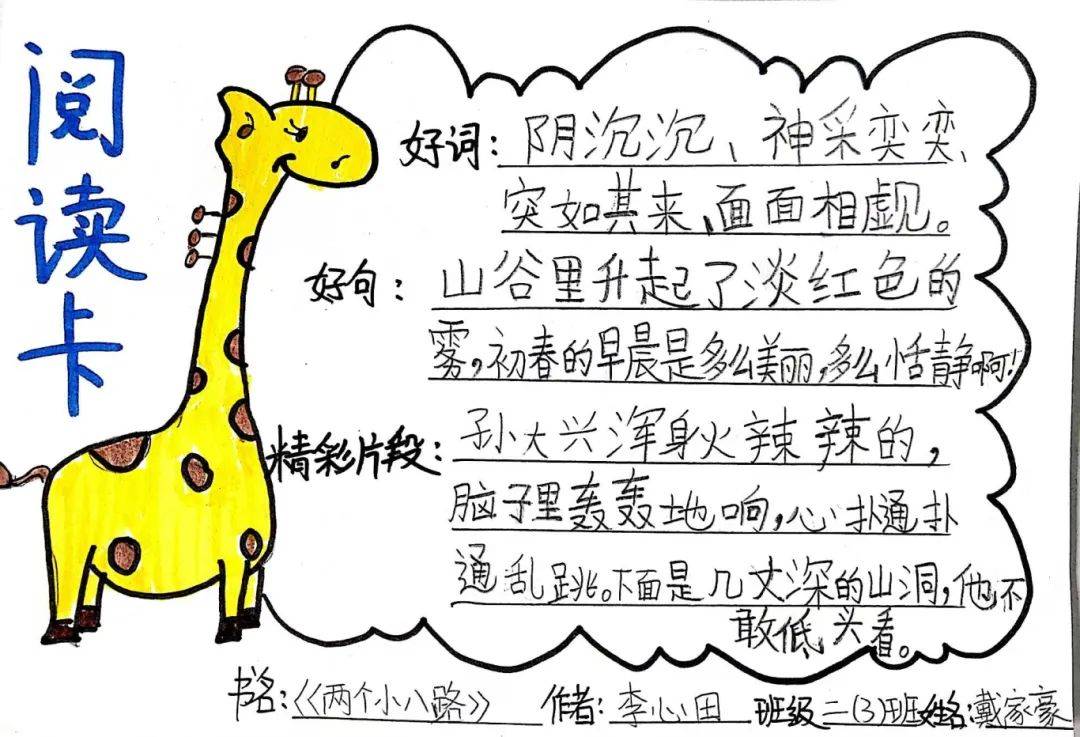 阅读卡
好词：阴沉沉、神采奕奕、
突如其来、面面相觑。
好句：山谷里升起了淡红色的
雾，初春的早晨是多么美丽，多么恬静啊！
精彩片段：孙大兴浑身火辣辣的，
脑子里轰轰地响，心扑通扑
通乱跳。下面是几丈深的山洞，他不
敢低头看。
书名：《两个小八路》 作者：李心田 班级二(3)班姓名：戴家豪